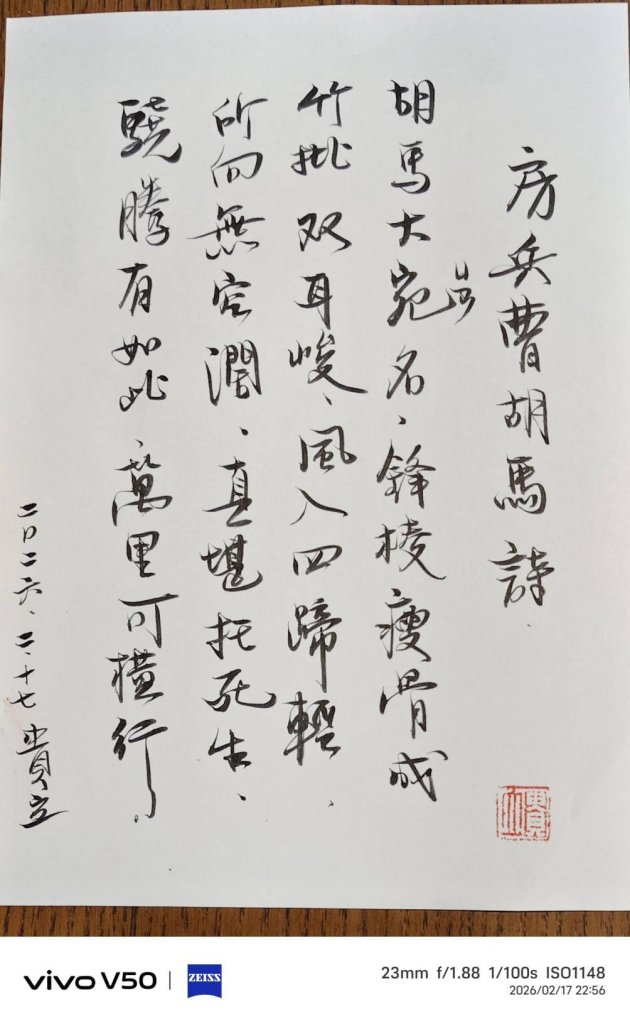 房兵曹胡馬詩.
胡馬大宛名、鋒棱瘦骨成
ㄩㄢ
竹批双耳峻、風入四蹄輕、
所向無空濶、真堪托死生、
驍騰有如此、萬里可橫行、
二〇二六、二、十七 貴立
vivo V50 | ZEISS
23mm f/1.88 1/100s ISO1148
2026/02/17 22:56